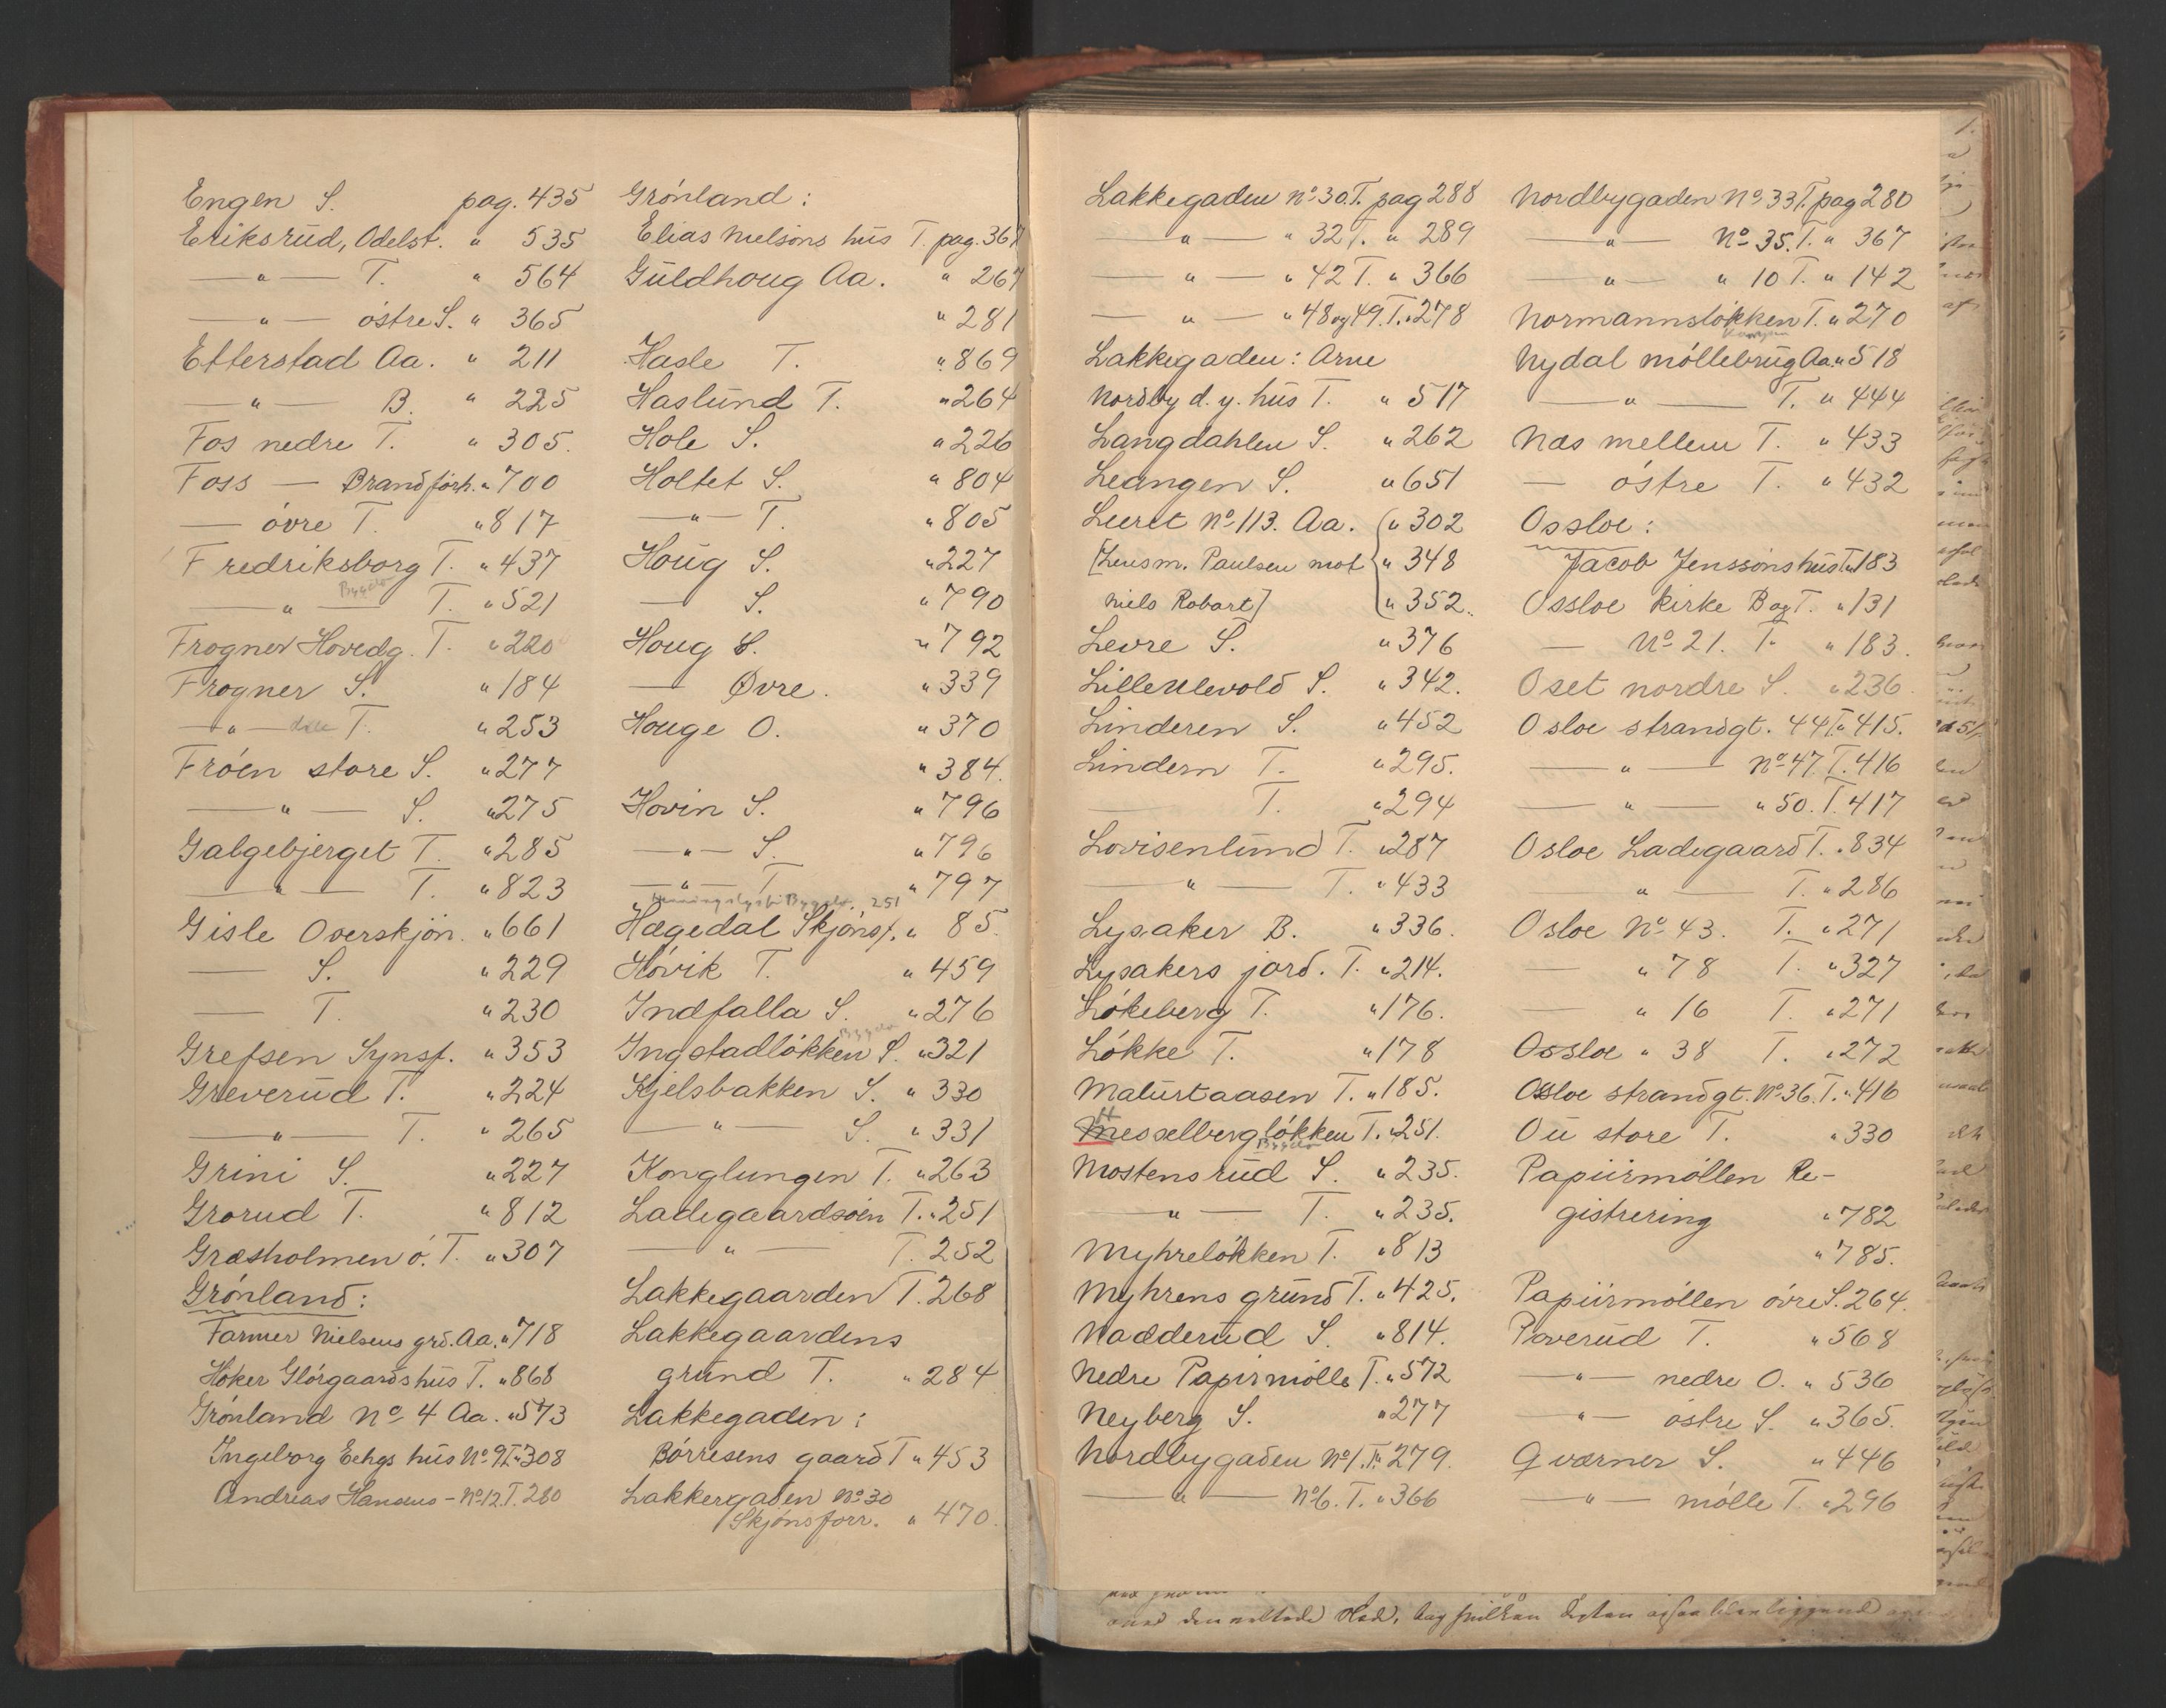 Engen S. pag. 435
Eriksrud, Odelst. " 535
—"— T. " 564
—"— östre S. " 365
Etterstad Aa. " 211
—"— B. " 225
Fos nedre T. " 305.
Foss — Brandförh. " 700
— övre T. " 817
Fredriksborg T. " 437
Bygdø
—"— T. " 521
Frogner Hovedg. T. " 220
Frogner S. " 184
—"— T. " 253
Fröen store S. " 277
—"— S. " 275
Galgebjerget T. " 285
—"— T. " 823
Gisle Overskjön. " 661
— S. " 229
— T. " 230
Grefsen Synsf. " 353
Greverud T. " 224
—"— T. " 265
Grini S. " 227
Grorud T. " 812
Græsholmen ö. T. " 307
Grönland:
Farmer Nielsens grd. Aa. " 718
Höker Glörgaards hus T. " 868
Grönland No 4 Aa. " 573
Ingeborg Echgs hus No 9 T. " 308
Andreas Hansens — No 12 T. 280
Grönland:
Elias Nielsons hus T. pag. 367
Guldhoug Aa. " 267
" 281
Hasle T. " 869
Haslund T. " 264
Hole S. " 226
Holtet S. " 804
—"— T. " 805
Houg S. " 227
— S. " 790
Houg S. " 792
— Øvre. " 339
Houge O. " 370
" 384.
Hovin S. " 796
—"— S. " 796
—"— T. " 797
251
Hægedal Skjönsf. " 85.
Hövik T. " 459
Indfalla S. " 276
Bygdø
Ingstadlökken S. " 321
Kjelsbakken S. " 330
—"— S. " 331
Konglungen T. " 263
Ladegaardsöen T. " 251
—"— T. 252
Lakkegaarden T. 268
Lakkegaardens
grund T. " 284
Lakkegaden:
Börresens gaard T " 453
Lakkergaden No 30
Skjönsforr. " 470.
Lakkegaden No 30. T. pag 288
—"— " 32 T. " 289
—"— " 42 T. " 366
—"— " 48 og 49. T. " 278
Lakkegaden: Arne
Nordby d. y. hus T. " 517
Langdahlen S. " 262
Leangen S. " 651
Leeret No 113. Aa. " 302
[Lensm. Paulsen mot " 348
Niels Robart] " 352.
Levre S. " 376
Lilleulevold S. " 342.
Linderen S. " 452
Lindern T. " 295.
— T. " 294
Lovisenlund T. " 287
—"— T. " 433
Lysaker B. " 336.
Lysakers jord. T. " 214.
Lökeberg T. " 176.
Lökke T. " 178
Maturtaasen T. " 185.
H
Messelberglökken T. " 251.
Bygdø
Mostensrud S. " 235.
—"— T. " 235.
Myhrelökken T. " 813
Myhrens grund T. " 425.
Nadderud S. " 814.
Nedre Papirmölle T. " 572
Neyberg S. " 277
Nordbygaden No 1. T. " 279.
—"— No 6. T. " 366
Nordbygaden No 33 T. pag 280
—"— No 35. T. " 367
—"— " 10 T. " 142
Normannslökken T. " 270
Nydal möllebrug Aa. " 518
—"— T. " 444
Næs mellem T. " 433
— östre T. " 432
Ossloe:
Jacob Jenssons hus T. " 183
Ossloe kirke B og T. " 131
— No 21. T. " 183.
Oset nordre S. " 236.
Osloe strandgt. 44 T. " 415.
—"— No 47 T. 416
—"— " 50. T. 417
Osloe Ladegaard T. " 834
—"— T. " 286
Osloe No 43. T. " 271
— " 78 T. " 327
— " 16 T. " 271
Ossloe " 38 T. " 272
Osloe strandgt. No 36. T. " 416
Ou store T. " 330
Papiirmöllen Re-
gistrering " 782
" 785.
Papiirmöllen övre S. 264.
Poverud T. " 568
—"— nedre O. " 536
—"— östre S. " 365.
Qværner S. " 446
—"— mölle T. " 296